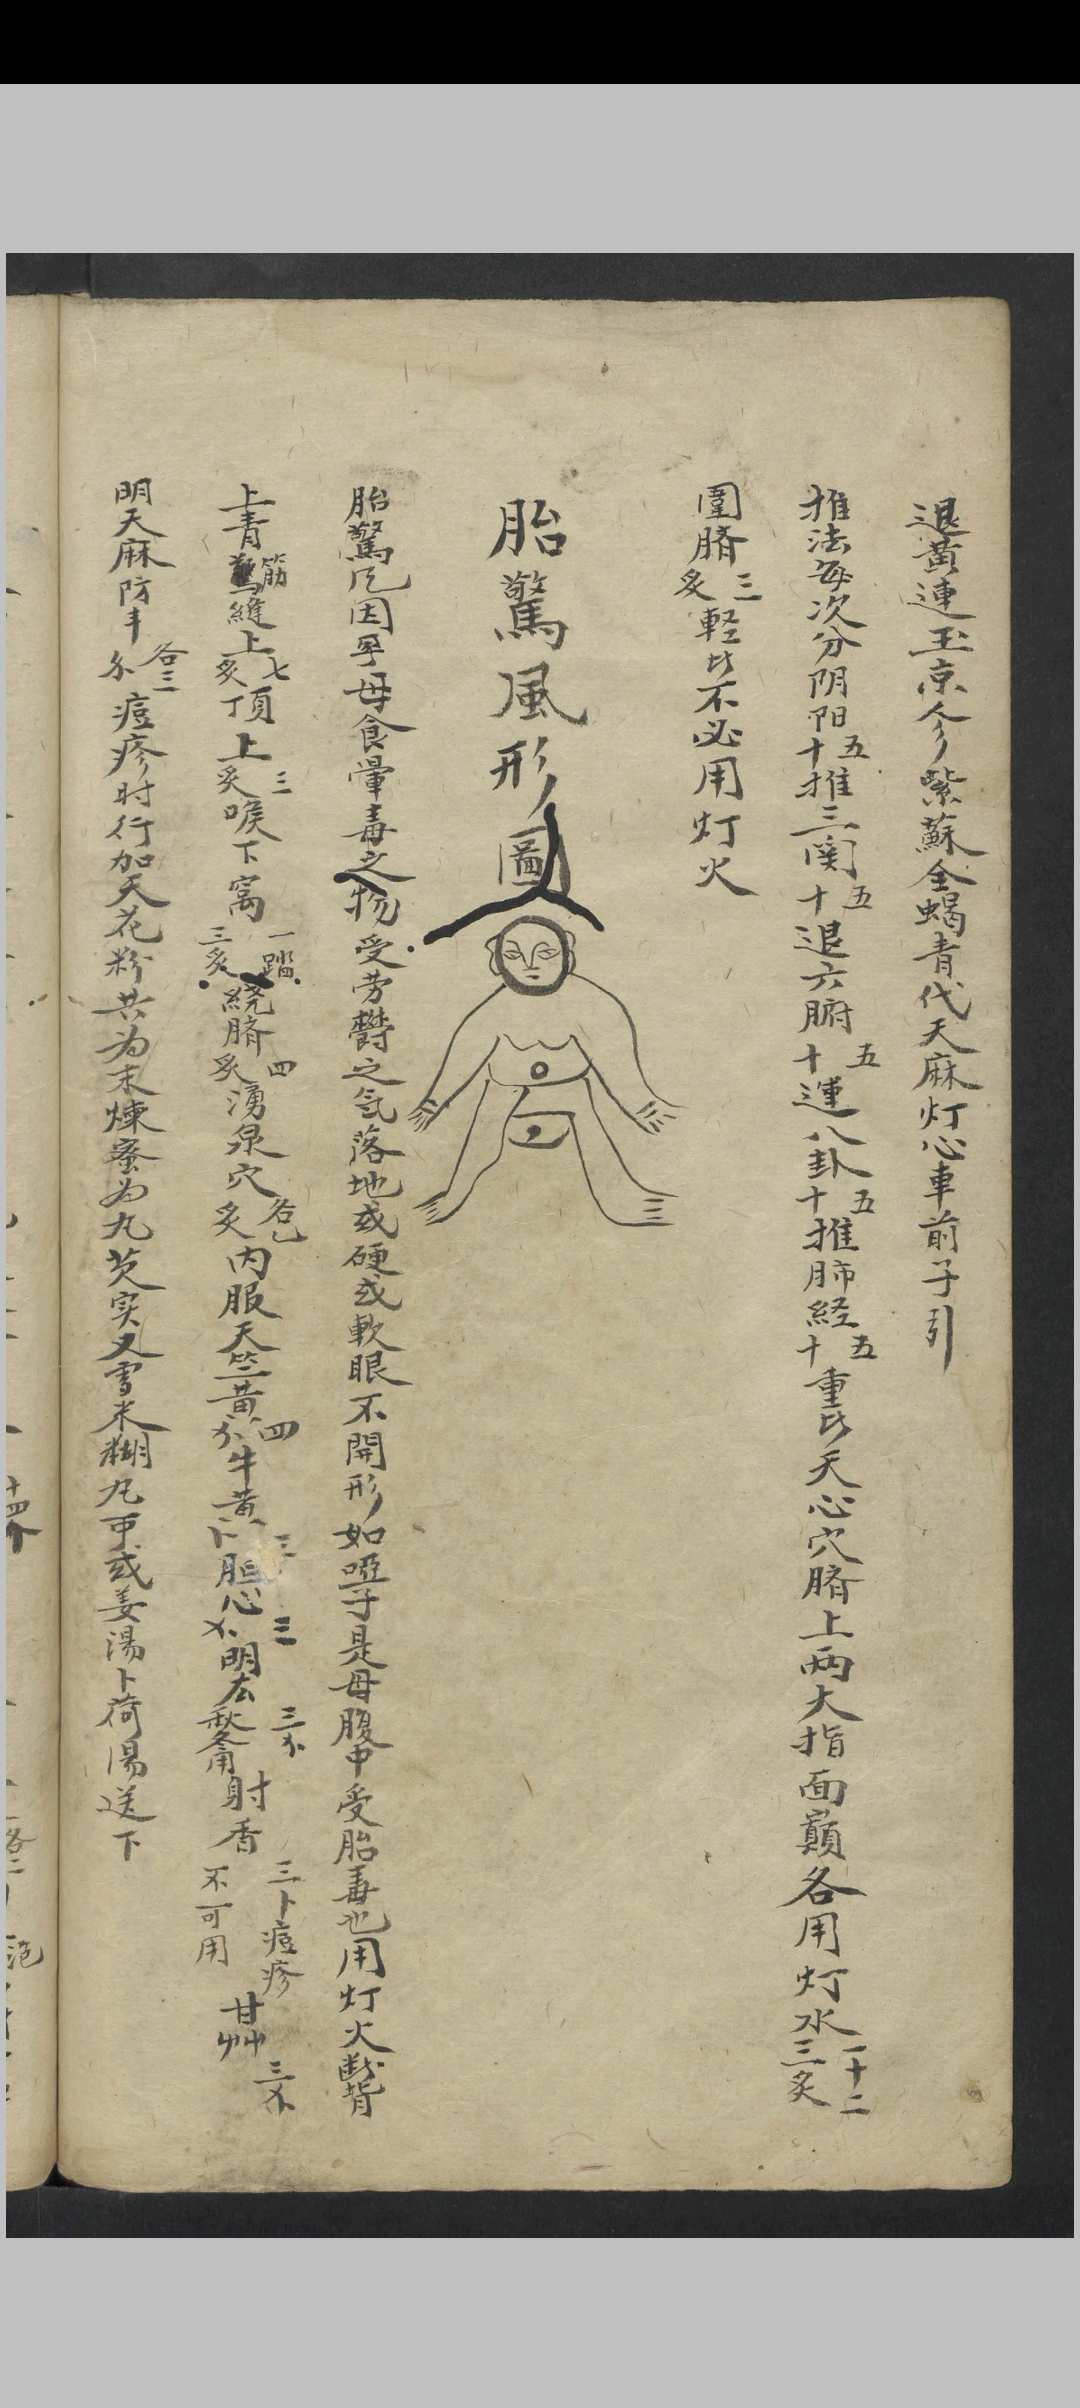 退黄連玉京介紫蘇全蝎青代天麻灯心車前子引
推法每次分阴阳五十推三関五十退六腑五十運八卦五十推肺経五十重比天心穴臍上兩大指面顛各用灯水一十二三炙
圍臍三炙輕比不必用灯火
胎驚風形圖
胎驚风因孕母食暈毒之物受劳欝之気落地或硬或軟眼不開形如啞子是母腹中受胎毒也用灯火断背
上青筋驚縫上七炙頂上三炙喉下窩一踏三炙繞臍四炙湧泉穴各乙炙内服天竺黄四分牛黄三卜胆心三分明太三分射香三卜痘疹不可用甘艸三分
明天麻防丰各三分痘疹时行加天花粉共为末煉蜜为丸芡实又雪米糊丸可或姜湯卜荷湯送下